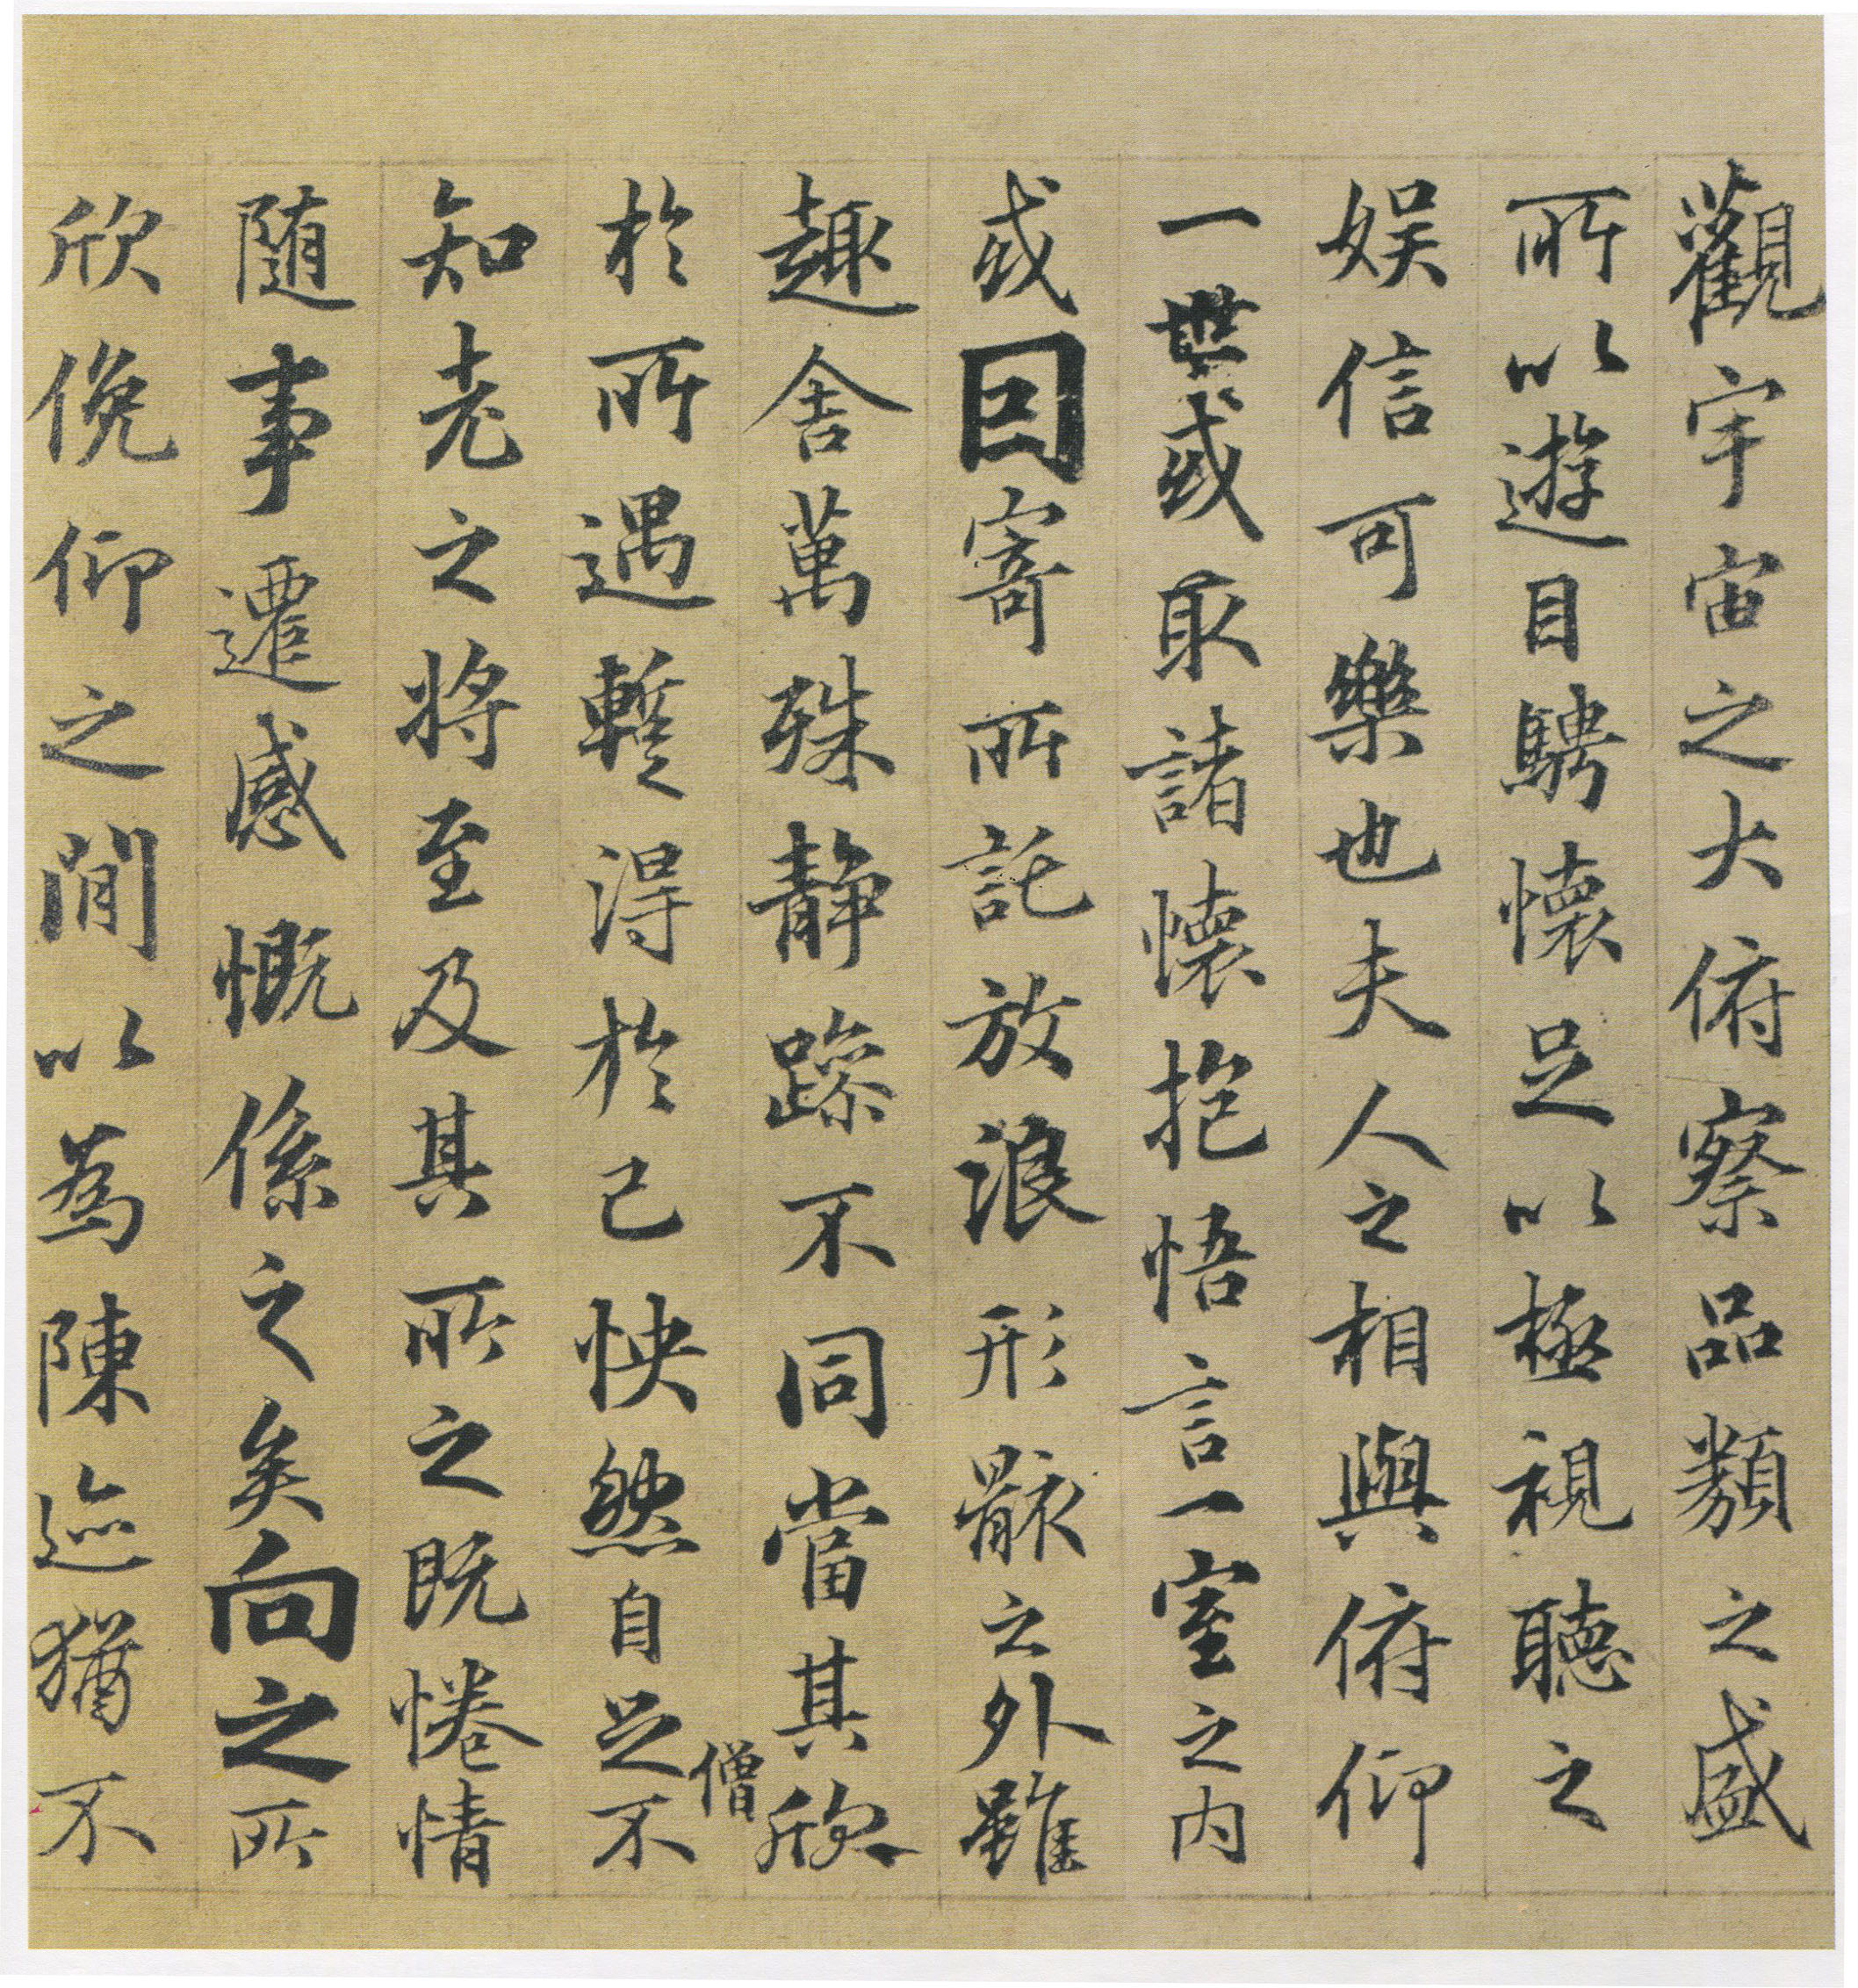 觀宇宙之大俯察品類之盛
所以遊目騁懷足以極視聽之
娛信可樂也夫人之相與俯仰
一世或取諸懷抱悟言一室之内
或因寄所託放浪形骸之外雖
趣舍萬殊静躁不同當其欣
僧
於所遇暫得於己怏然自足不
知老之將至及其所之既惓情
随事遷感慨係之矣向之所
欣俛仰之閒以為陳迹猶不